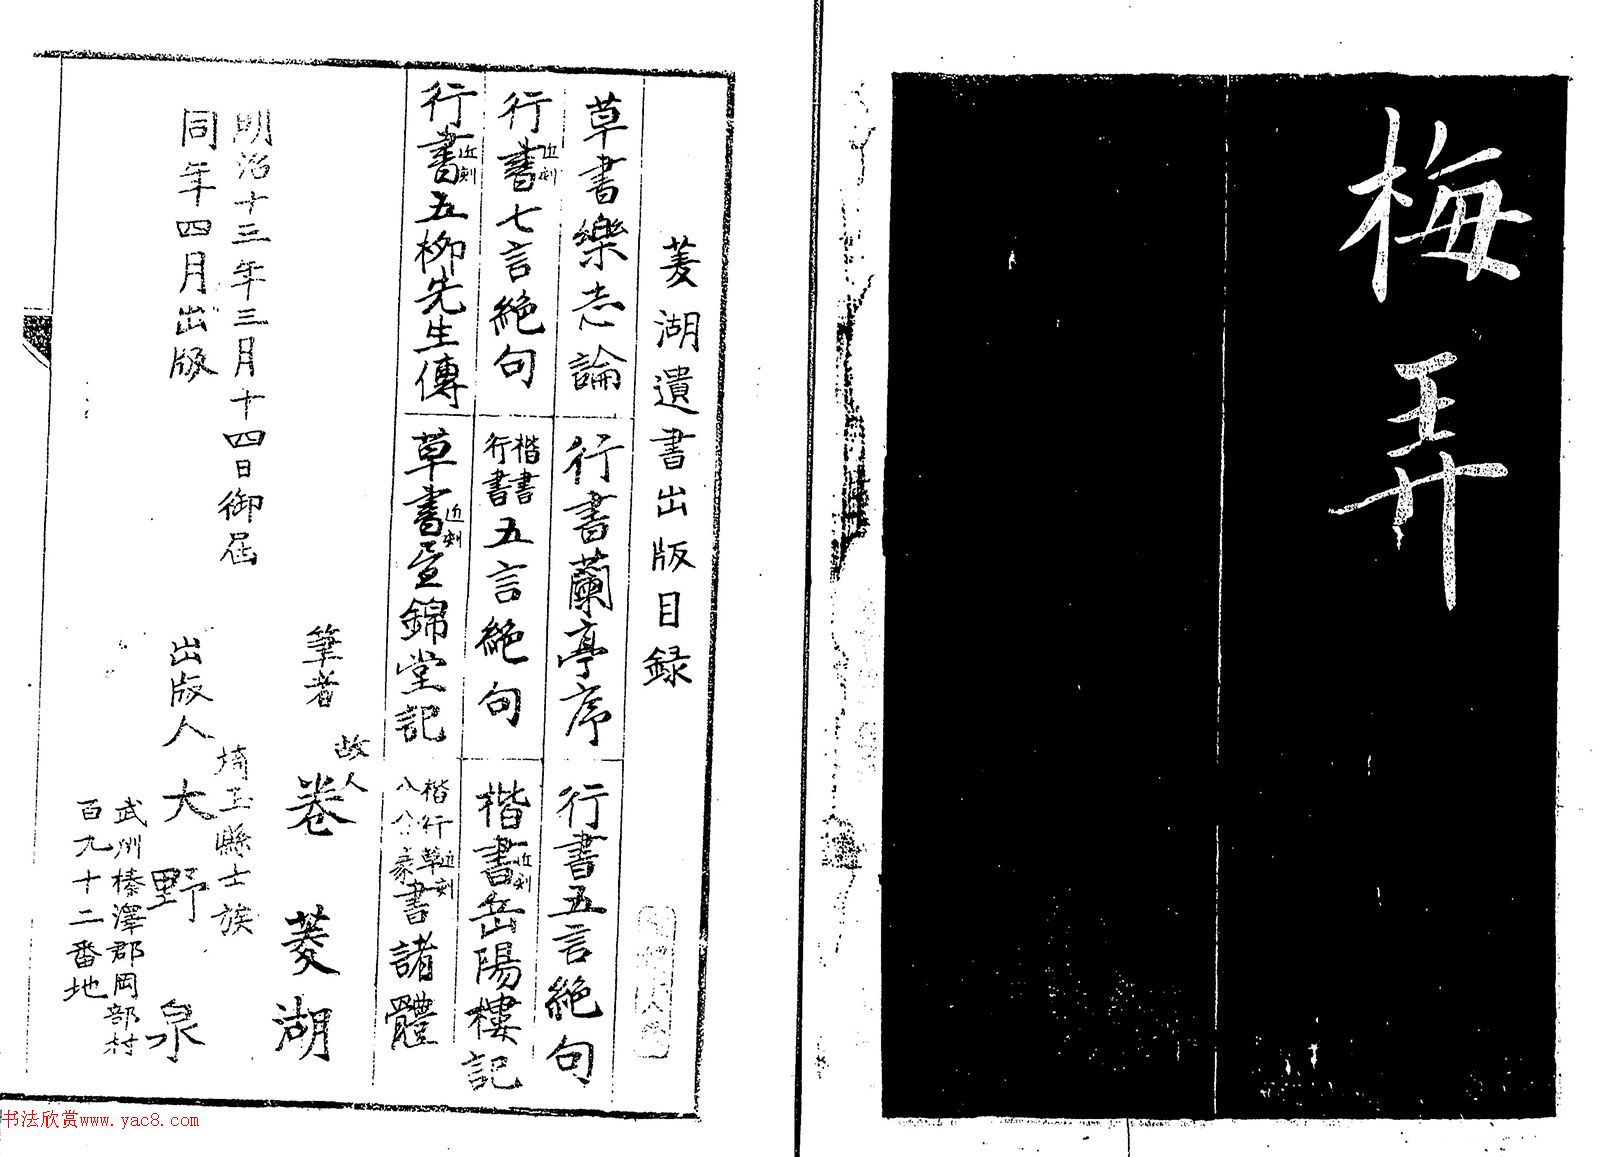 梅弄
菱湖遺書出版目録
草書樂志論
行書蘭亭序
行書五言絶句
行書近刻七言絶句
楷書行書五言絶句
楷書近刻岳陽樓記
行書近刻五柳先生傳
草書近刻昼錦堂記
楷行草近刻八分篆書諸體
筆者
故人
卷菱湖
明治十三年三月十四日御届
同年四月出版
埼玉縣士族
出版人大野泉
武州榛澤郡岡部村
百九十二番地
书法欣赏www.yac8.com